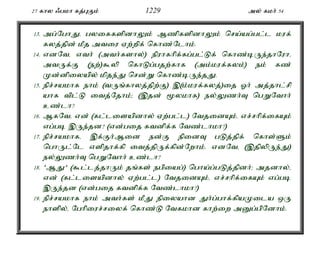 27 கால ஃபமா கத்புகும் 1229 அல் கமர் 54
13. அப்போது, பலகைகளினாலும் ஆணிகளினாலும் செய்யப்பட்ட மரக் கலத்தின் மீது அவரை ஏற்றிக் கொண்டோம்.
14. எனவே, எவர் (அவர்களால்) நிராகரிக்கப்பட்டுக் கொண்டிருந்தாரோ, அவருக்கு (நற்)கூலி கொடுப்பதற்காக (அம்மரக்கலம்) நம் கண் முன்னிலையில் மிதந்து சென்று கொண்டிருந்தது.
15. நிச்சயமாக நாம் (வருங்காலத்திற்கு) இ(ம்மரக்கலத்)தை ஓர் அத்தாட்சி யாக விட்டு வைத்தோம்; (இதன் மூலமாக) நல்லுணர்வு பெறுவோர் உண்டா?
16. ஆகவே, என் (கட்டளையினால் ஏற்பட்ட) வேதனையும், எச்சரிக்கையும் எப்படி இருந்தன? (என்பதை கவனிக்க வேண்டாமா?)
17. நிச்சயமாக, இக்குர்ஆனை நன்கு நினைவு படுத்திக் கொள்ளும் பொருட்டே எளிதாக்கி வைத்திருக்கின்றோம். எனவே, (இதிலிருந்து) நல்லுணர்வு பெறுவோர் உண்டா?
18. "ஆது" (கூட்டத்தாரும் தங்கள் நபியைப்) பொய்ப்படுத்தினர்; அதனால், என் (கட்டளையினால் ஏற்பட்ட) வேதனையும், எச்சரிக்கையும் எப்படி இருந்தன (என்பதை கவனிக்க வேண்டாமா?)
19. நிச்சயமாக நாம் அவர்கள் மீது நிலையான துர்ப்பாக்கியமுடைய ஒரு நாளில், பேரிரைச்சலைக் கொண்டு வேகமான காற்றை அனுப்பினோம்.